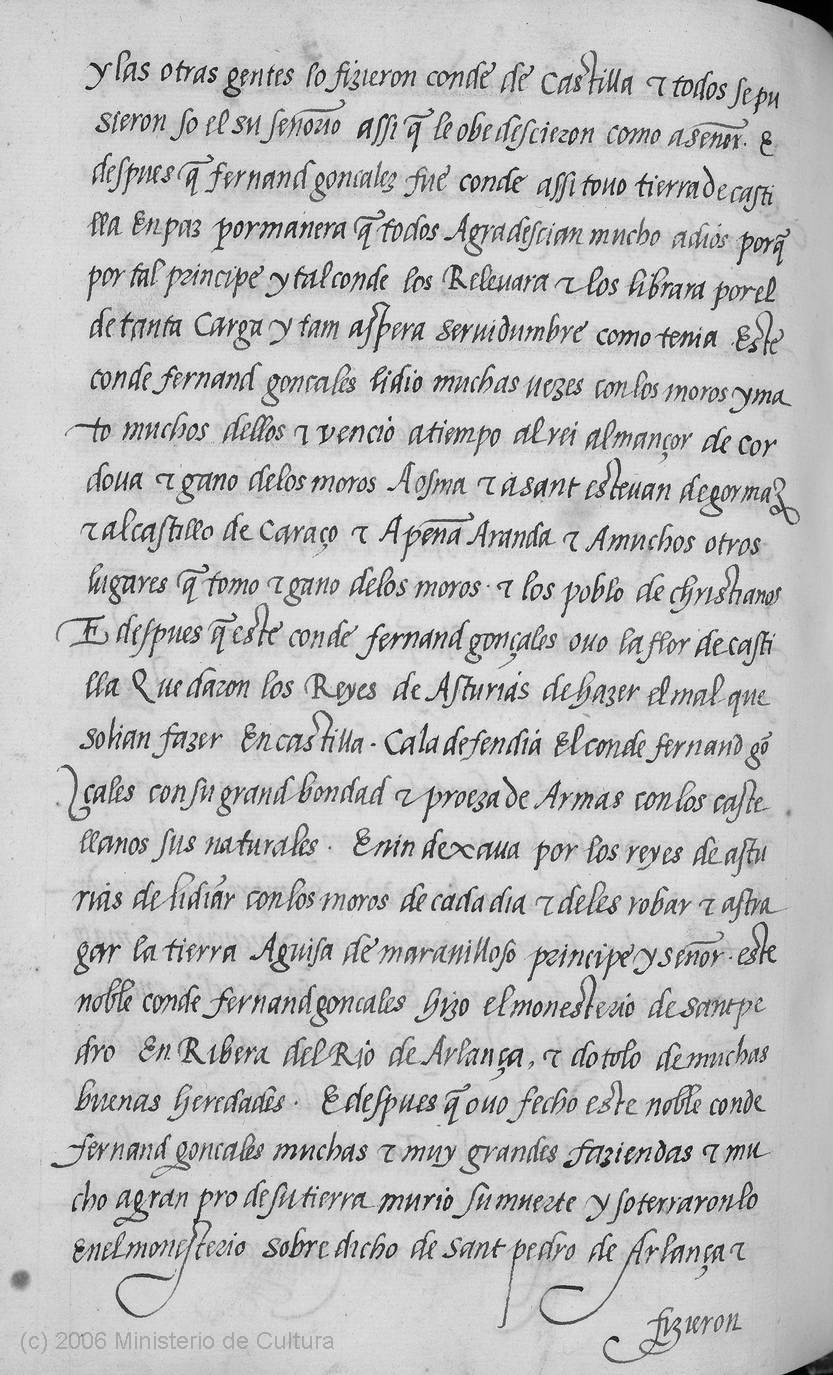 y las otras gentes lo fizieron conde de Castilla ⁊ todos se pu
sieron so el su señorio assi q̃ le obedescieron como a señor. E
despues q̃ fernand goncalez fue conde assi tovo tierra de casti
lla En paz por manera q̃ todos Agradescian mucho a dios porq̃
por tal principe y tal conde los Relevara ⁊ los librara por el
de tanta Carga y tam aspera servidumbre como tenia Este
conde fernand goncales lidio muchas vezes con los moros y ma
to muchos dellos ⁊ vencio a tiempo al rei almançor de Cor
dova ⁊ gano de los moros A osma ⁊ a sant estevan de gormaz
⁊ al castillo de Caraço ⁊ A peña Aranda ⁊ A muchos otros
lugares q̃ tomo ⁊ gano de los moros. ⁊ los poblo de christianos
E despues q̃ este conde fernand gonçales ovo la flor de casti
lla Quedaron los Reyes de Asturias de hazer el mal que
solian fazer En castilla. Ca la defendia El conde fernand gõ
çales con su grand bondad ⁊ proeza de Armas con los caste
llanos sus naturales. E nin dexava por los reyes de astu
rias de lidiar con los moros de cada dia ⁊ de les robar ⁊ astra
gar la tierra A guisa de maravilloso principe y señor. este
noble conde fernand goncales hizo el monesterio de sant pe
dro En Ribera del Rio de Arlança, ⁊ dotolo de muchas
buenas heredades. E despues q̃ ovo fecho este noble conde
fernand goncales muchas ⁊ muy grandes faziendas ⁊ mu
cho a gran pro de su tierra murio su muerte y soterraronlo
En el monesterio sobre dicho de sant pedro de Arlança ⁊
fizieron
(c) 2006 Ministerio de Cultura